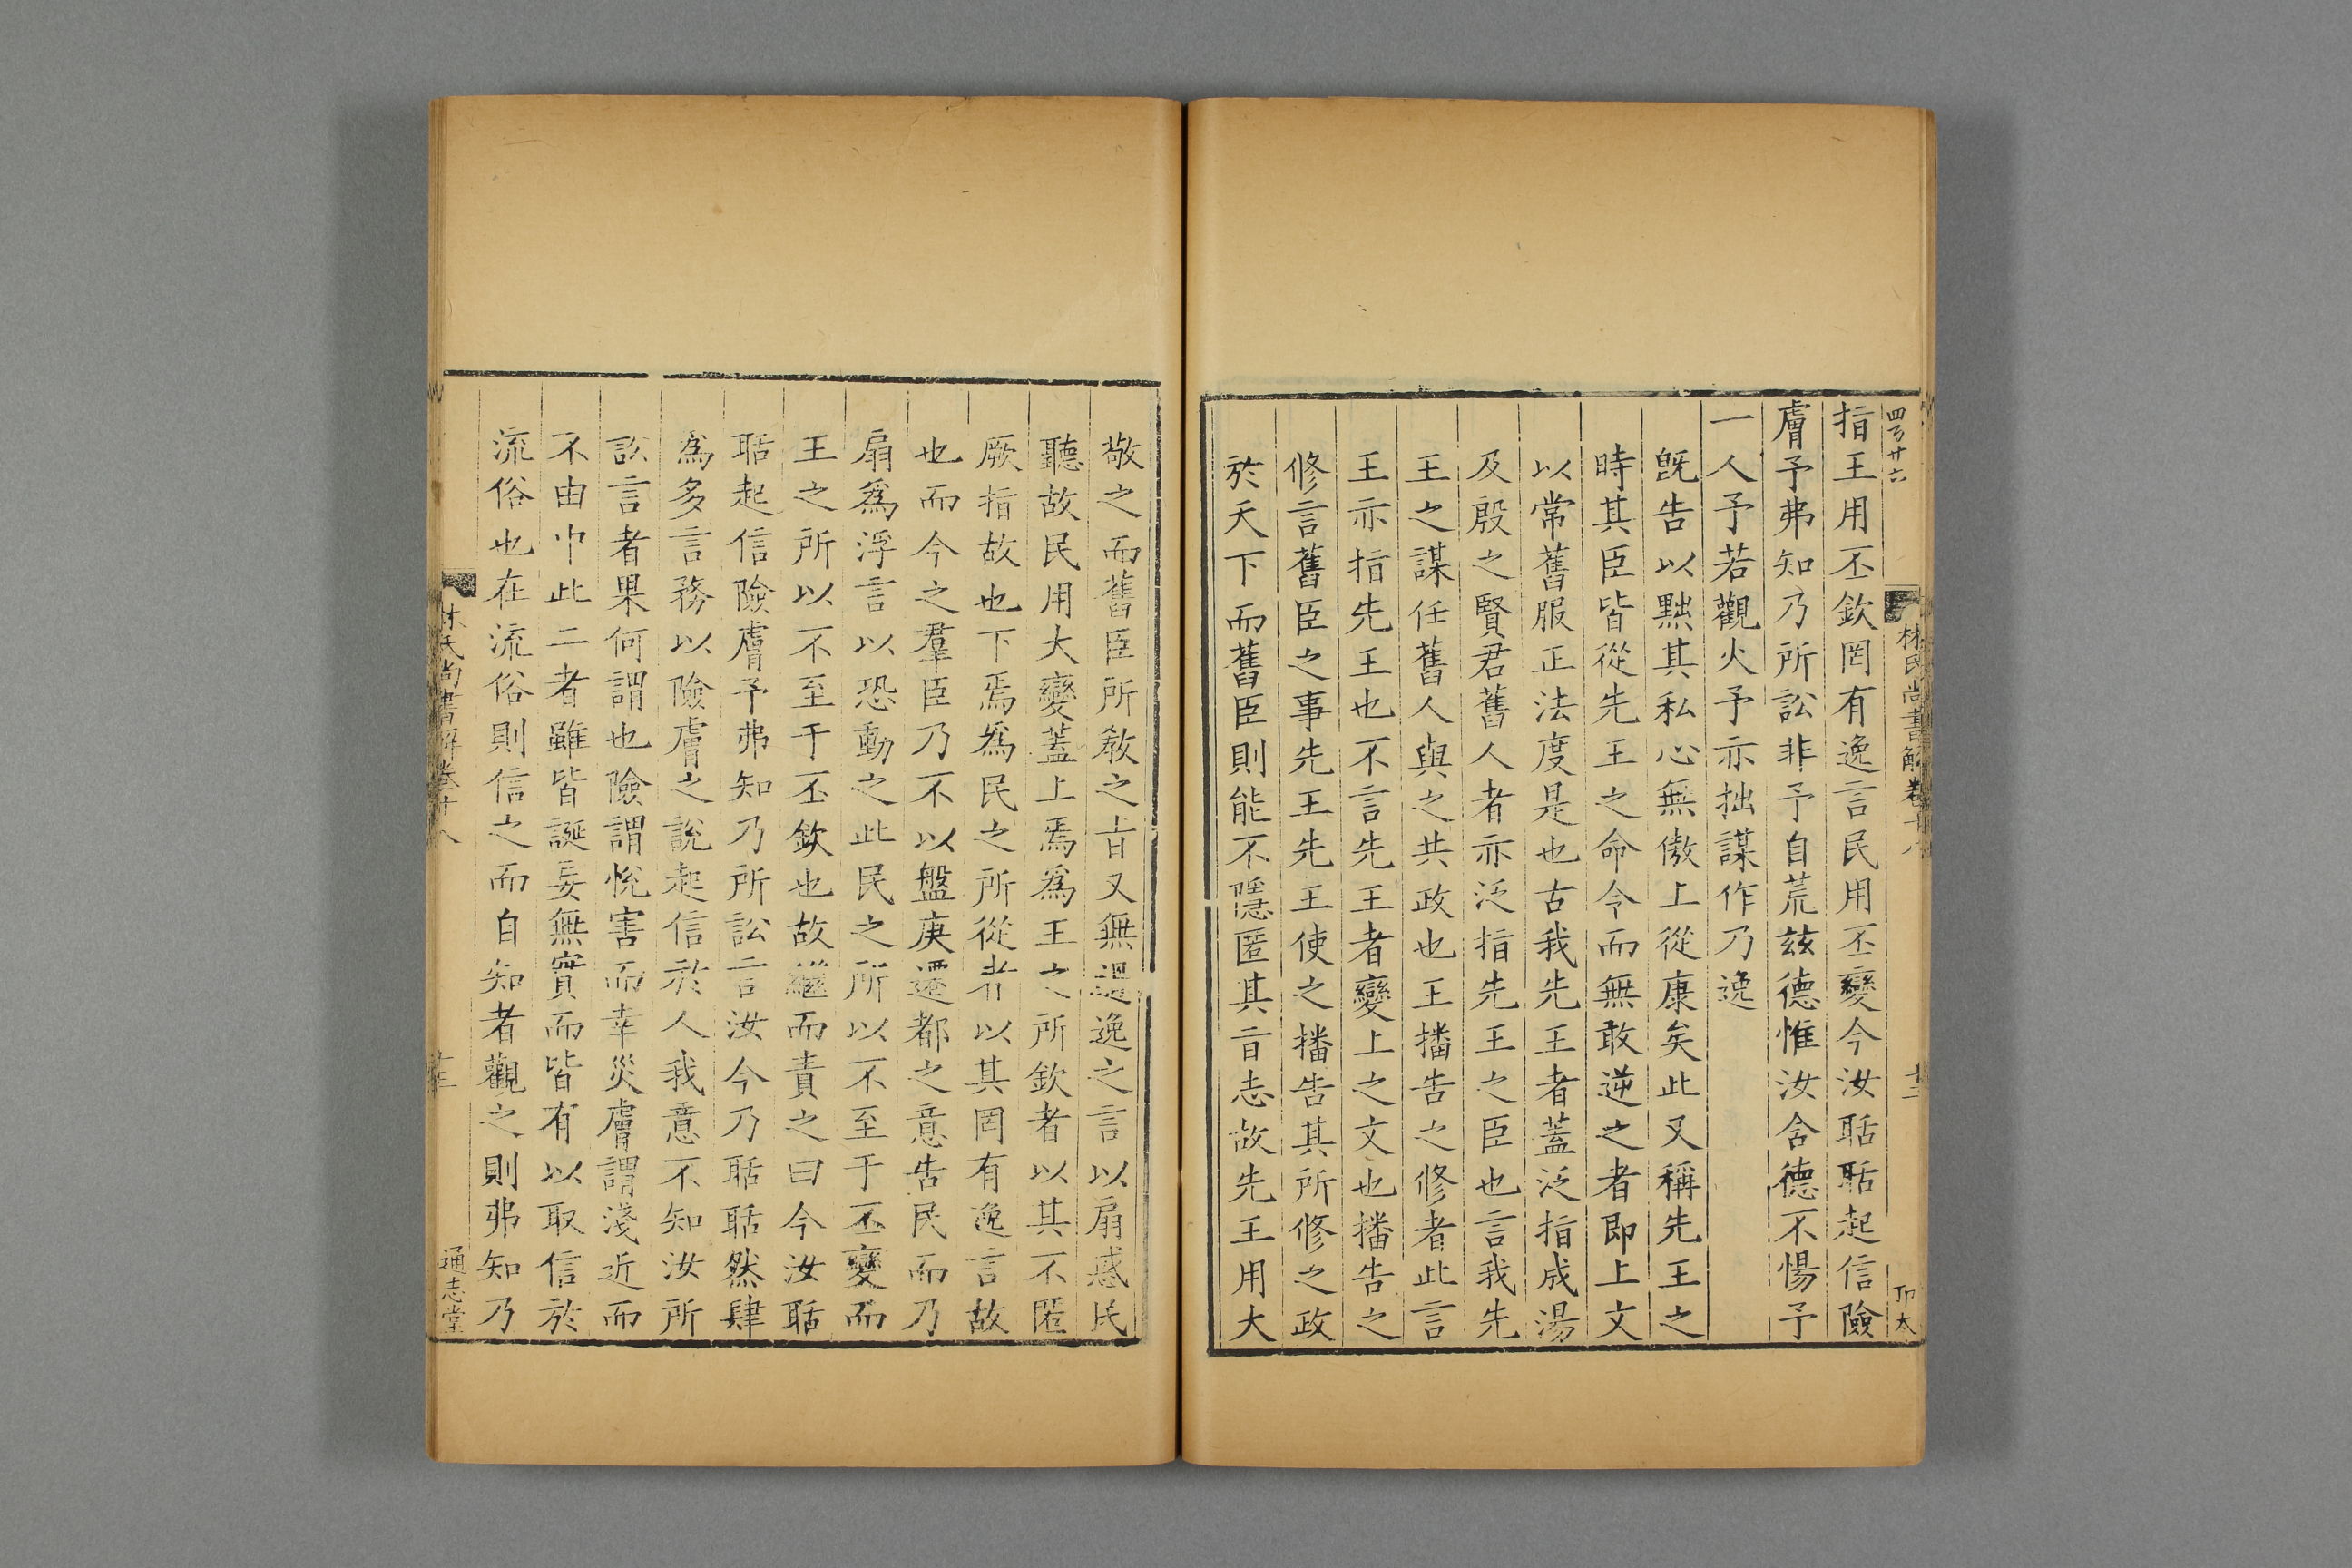 林氏尚書解卷十八
指王用丕欽罔有逸言民用丕變今汝聒聒起信險
膚予弗知乃所訟非予自荒兹德惟汝含德不惕予
一人予若觀火予亦拙謀作乃逸
旣告以黜其私心無傲上從康矣此又稱先王之
時其臣皆從先王之命令而無敢逆之者即上文
以常舊服正法度是也古我先王者蓋泛指成湯
及殷之賢君舊人者亦泛指先王之臣也言我先
王之謀任舊人與之共政也王播告之修者此言
王亦指先王也不言先王者變上之文也播告之
修言舊臣之事先王先王使之播告其所修之政
於天下而舊臣則能不隱匿其㫖志故先王用大
敬之而舊臣所敎之㫖又無過逸之言以扇惑民
聽故民用大變蓋上焉爲王之所欽者以其不匿
厥指故也下焉爲民之所從者以其罔有逸言故
也而今之羣臣乃不以盤庚遷都之意告民而乃
扇爲浮言以恐動之此民之所以不至于丕變而
王之所以不至于丕欽也故繼而責之曰今汝聒
聒起信險膚予弗知乃所訟言汝今乃聒聒然肆
爲多言務以險膚之說起信於人我意不知汝所
訟言者果何謂也險謂恱害而幸災膚謂淺近而
不由中此二者雖皆誕妄無實而皆有以取信於
流俗也在流俗則信之而自知者觀之則弗知乃
林氏尚書解卷十八
通志堂